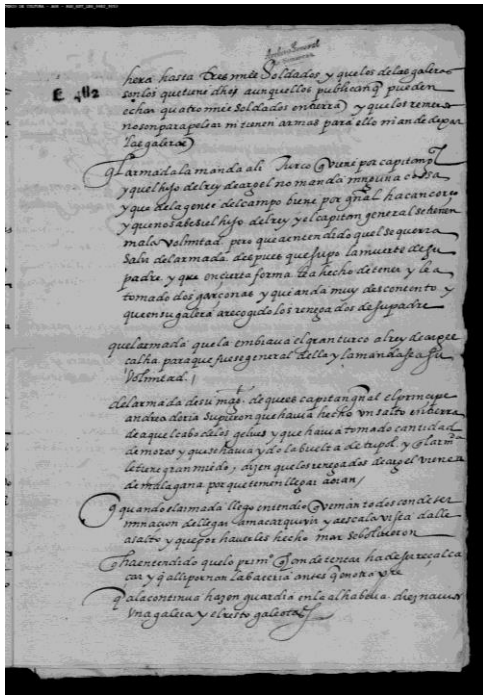 E 482
hera hasta tres mill soldados y que los de las galeras
son los que tiene dhos aunque ellos publican q pueden
echar quatro mill soldados en tierra y que los remeros
no son para pelear ni tienen armas para ello ni an de dexar
las galeras
q la armada la manda ali Turco q viene por capitan
y que el hijo del rey de argel no manda ninguna cossa
y que de la gente del campo viene por gnal
y que no sabe si el hijo del rey y el capitan general se tienen
mala volmtad. pero que a entendido que el se querria
salir del armada despues que supo la muerte de su
padre. y que en çierta forma le a hecho detener y le a
tomado dos garçones y que anda muy descontento y
que en su galera a recogido los renegados de su padre
que la armada que la embiava el gran turco al rey de argel
para que fuese general della y la mandase a su
volmtad.
del armada de su mag. de que es capitan gnal el principe
andrea doria supieron que havia hecho un salto en tierra
de aquel cabo de los gelves y que havia tomado cantidad
de moros y que se havia ydo la buelta de tripol. y
le tiene gran miedo, dizen que los renegados de argel vienen
de mala gana porque temen llegar a oran
q quando el armada llego entendio q venian todos con deter
minaçion de llegar a maçarquivir y a escala vista dalle
asalto y que por haverles hecho mar se bolvieron
q ha entendido que lo prim q an de tentar ha de ser
y q alli pornan la bateria antes q en otra
q a la continua hazen guardia en el alhabeca diez naos
una galera y el resto galeotas